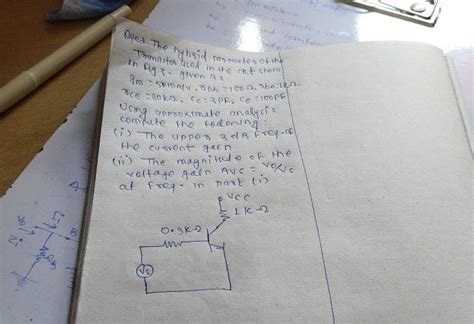 Ques The hybrid parameter of the
Transistor used in the ckt show
in fig 3. given as
gm = 50mA/v, rbb = 100Ω, rbe = 1KΩ
rce = 80KΩ, Cc = 3PF, Ce = 100PF
Using approximate analysis
compute the following:
(i) The upper 3dB freq. of
the current gain
(ii) The magnitude of the
voltage gain AVS = Vo/Vs
at freq. in part (i)
VCC
1K-Ω
0.9K-Ω
Vs
B